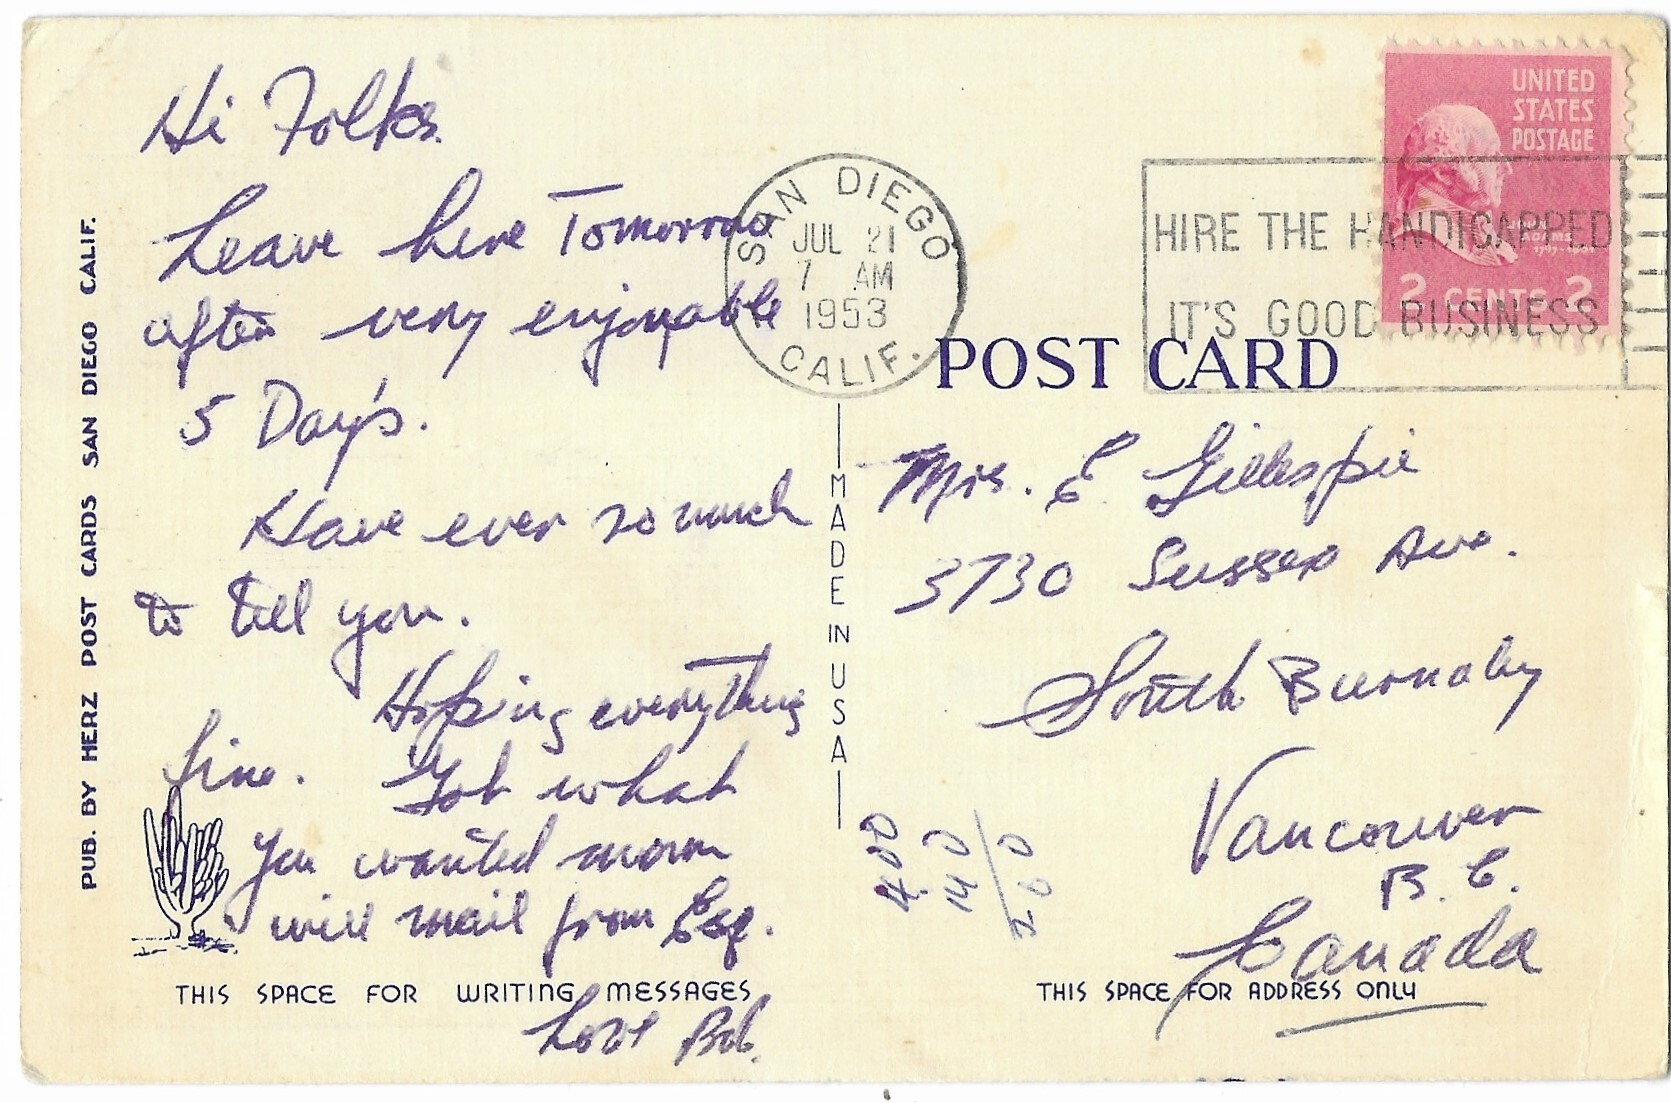 Hi Folks.
Leave here Tomorrow
after very enjoyable
5 Day's.
Have ever so much
to tell you.
Hoping everything
fine. Got what
you wanted mom
will mail from Esq.
Love Bob.
THIS SPACE FOR WRITING MESSAGES
PUB. BY HERZ POST CARDS SAN DIEGO CALIF.
MADE IN USA
SAN DIEGO
JUL 21
7 AM
1953
CALIF.
HIRE THE HANDICAPPED
IT'S GOOD BUSINESS
UNITED
STATES
POSTAGE
ADAMS
2 CENTS 2
POST CARD
Mrs. E Gillespie
3730 Sussex Ave.
South Burnaby
Vancouver
B. C.
Canada
400
140
260
THIS SPACE FOR ADDRESS ONLY